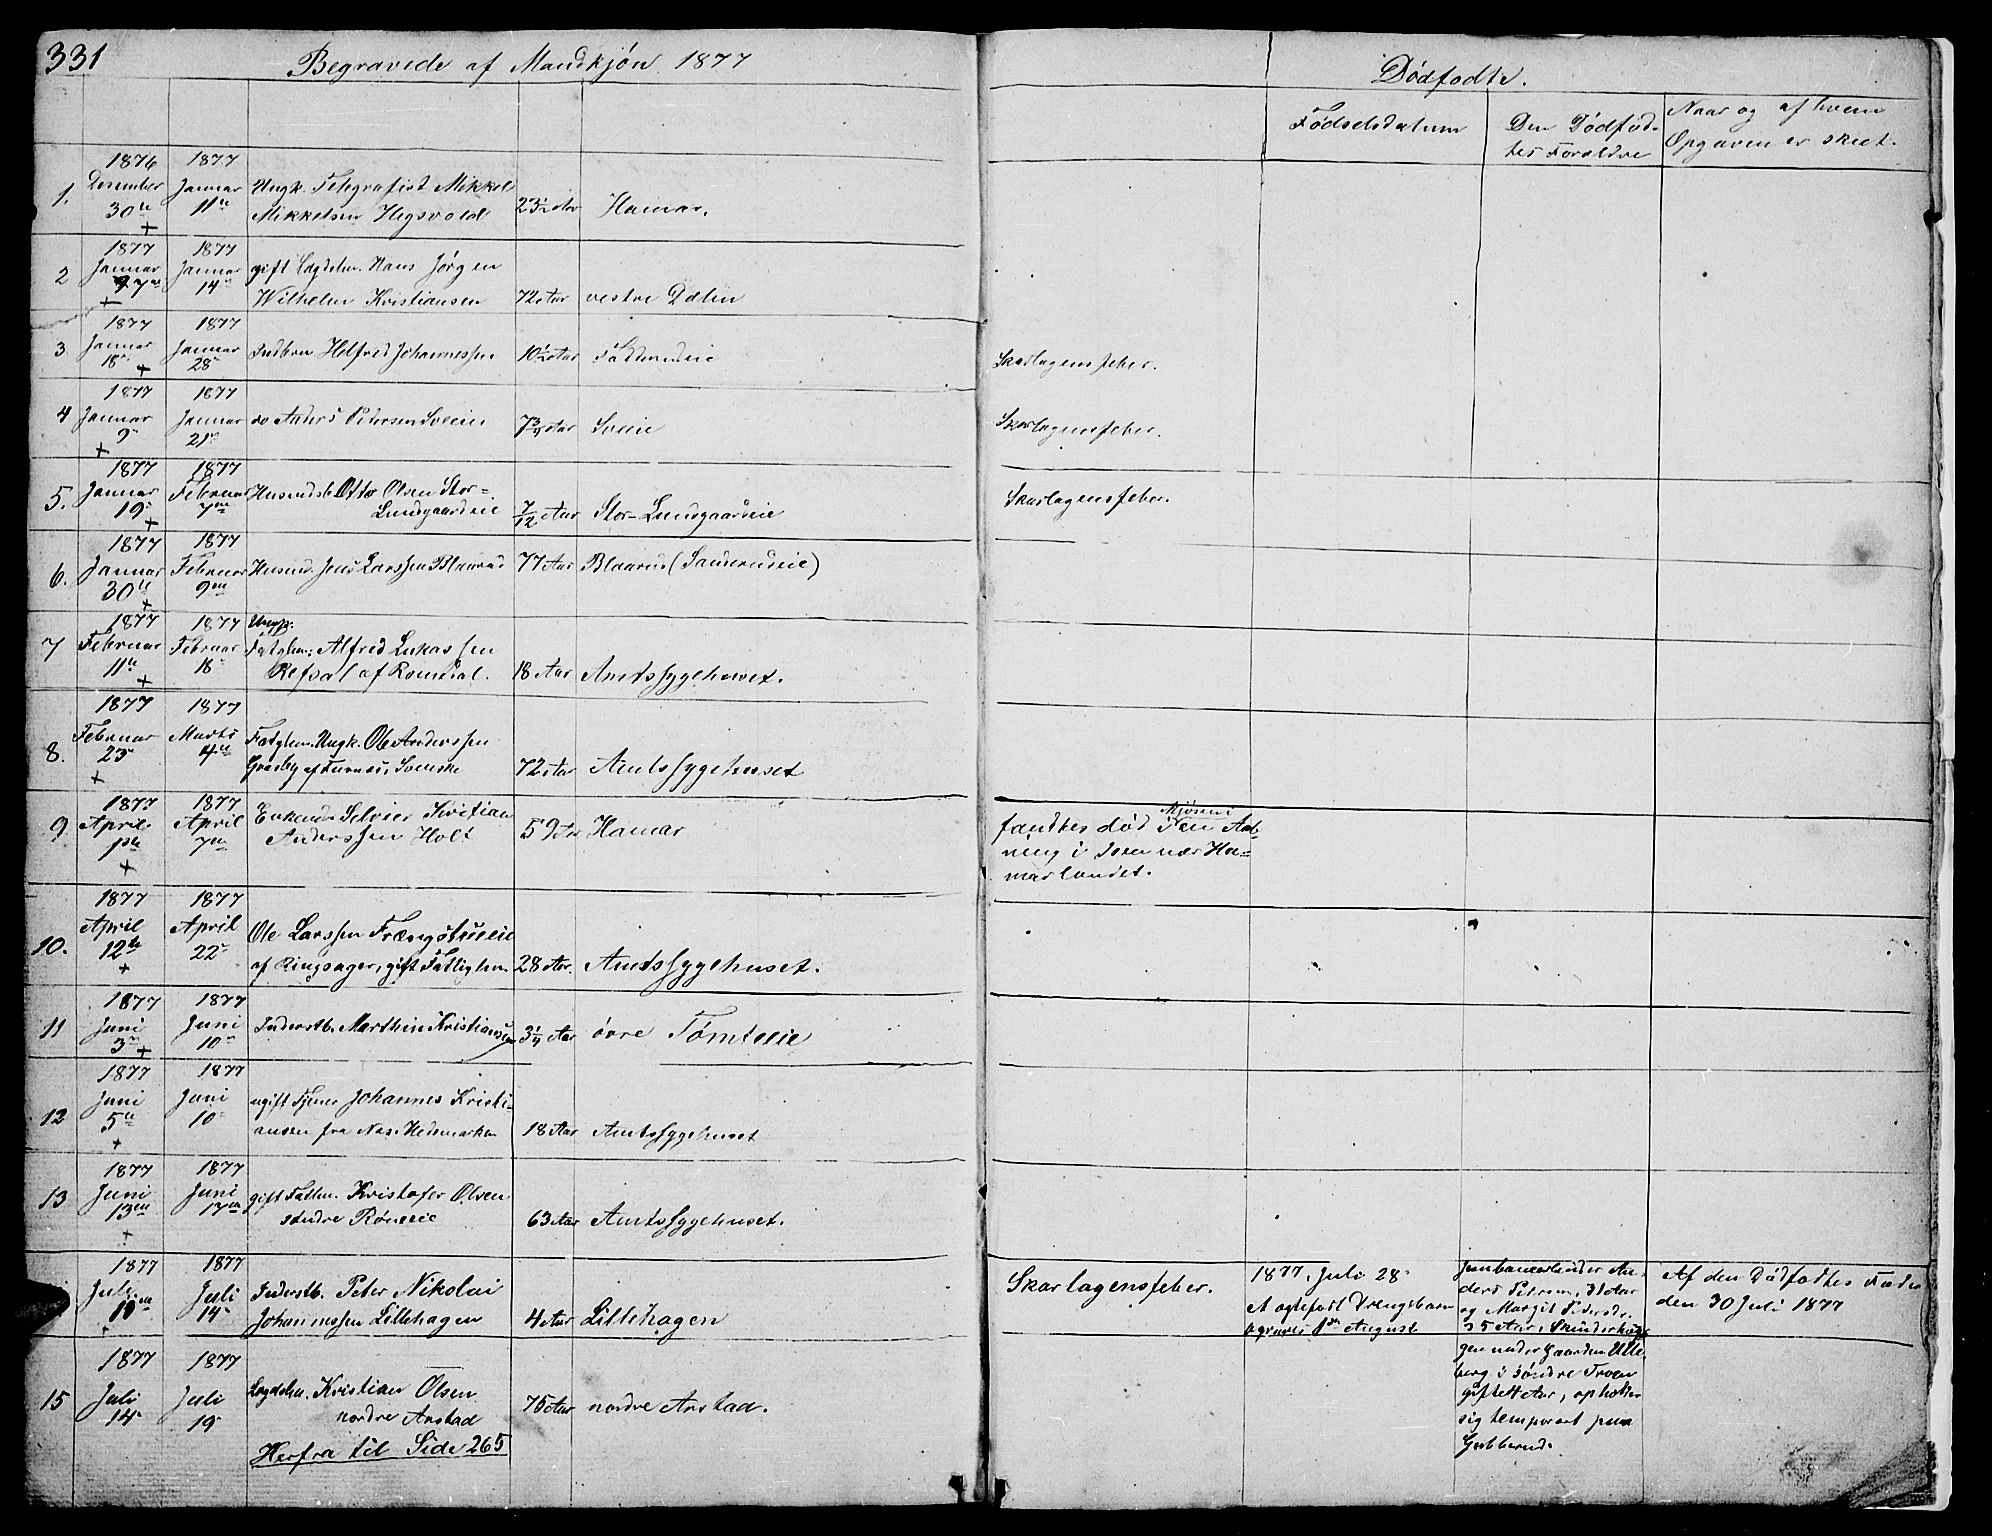 331
Begravede af Mandkjøn 1877
Dødfødte.
Fødselsdatum
Den Dødfød-
tes Foreldre
Naar og af hvem
Opgaven er skeet.
1.
1876
Desember
30te
+
1877
Januar
11te
Ungk. Telegrafist Mikkel
Mikkelsen Hegsvold
23½ Aar
Hamar.
2
1877
Januar
7de
+
1877
Januar
14
gift Lægdslm. Hans Jørgen
Wilhelm Kristiansen
72 Aar
vestre Dælin
3
1877
Januar
18
+
1877
Januar
28
Helfred Johannessen
10½ Aar
Skarlagensfeber.
4
1877
Januar
9
+
1877
Januar
21
do Anders Petersen Sveeie
7¾ Aar
Sveeie
Skarlagensfeber.
5.
1877
Januar
19
+
1877
Februar
7de
Husmdsb. Otto Olsen Stor-
Lundgaardeie
7/12 Aar
Stor-Lundgaardeie
Skarlagensfeber.
6.
1877
Januar
30te
+
1877
Februar
9de
Husmd. Jens Larssen Blaarud
77 Aar
Blaarud (Sanderudeie)
7
1877
Februar
11te
+
1877
Februar
18
Ungk.
Fatglem; Alfred Lukassen
Refsal af Romsdal.
18 Aar
Amtssygehuset.
8.
1877
Februar
23
+
1877
Marts
4de
Fatglem. Ungk. Ole Anderssen
af Furnes, Svenske
72 Aar
Amtssygehuset
9
1877
April
1ste
+
1877
April
7de
Enkemd. Selveier Kristian
Anderssen Holt
59 Aar
Hamar
Mjøsen i
fandtes død i en Aab-
ning i Isen nær Ha-
marlandet.
10.
1877
April
12te
+
1877
April
22
Ole Larssen Frængstueeie
af Ringsager, gift Fattiglem.
28 Aar.
Amtssygehuset.
11
1877
Juni
3
+
1877
Juni
10
Inderstb. Marthin Kristiansen
3¼ Aar
övre Tømteeie
12
1877
Juni
5te
+
1877
Juni
10
ugift Tjener Johannes Kristi-
ansen fra Nes. Hedemarken
18 Aar
Amtssygehuset
13
1877
Juni
13de
+
1877
Juni
17de
gift Fatlm. Kristofer Olsen
söndre Röneeie
63 Aar
Amtssygehuset.
1877
Juli
1877
Juli
14
Inderstb. Peter Nikolai
Johannessen Lillehagen
4 Aar
Lillehagen
Skarlagensfeber.
1877, Juli 28
et ægtefødt Drengebarn
begraves 1ste August
Jernbanearbeider An-
ders Petersen, 31 Aar
og Margit Pedersdr,
35 Aar,
gen under Gaarden Ulle-
berg i söndre Troen
gifte Aar, opholder
sig temporært paa
Gubberud.
Af den Dødfødtes Fader
den 30 Juli 1877
15
1877
Juli
14
1877
Juli
19
Lægdslm. Kristian Olsen
nordre Arstad
75 Aar
nordre Arstad.
Herfra til Side 265